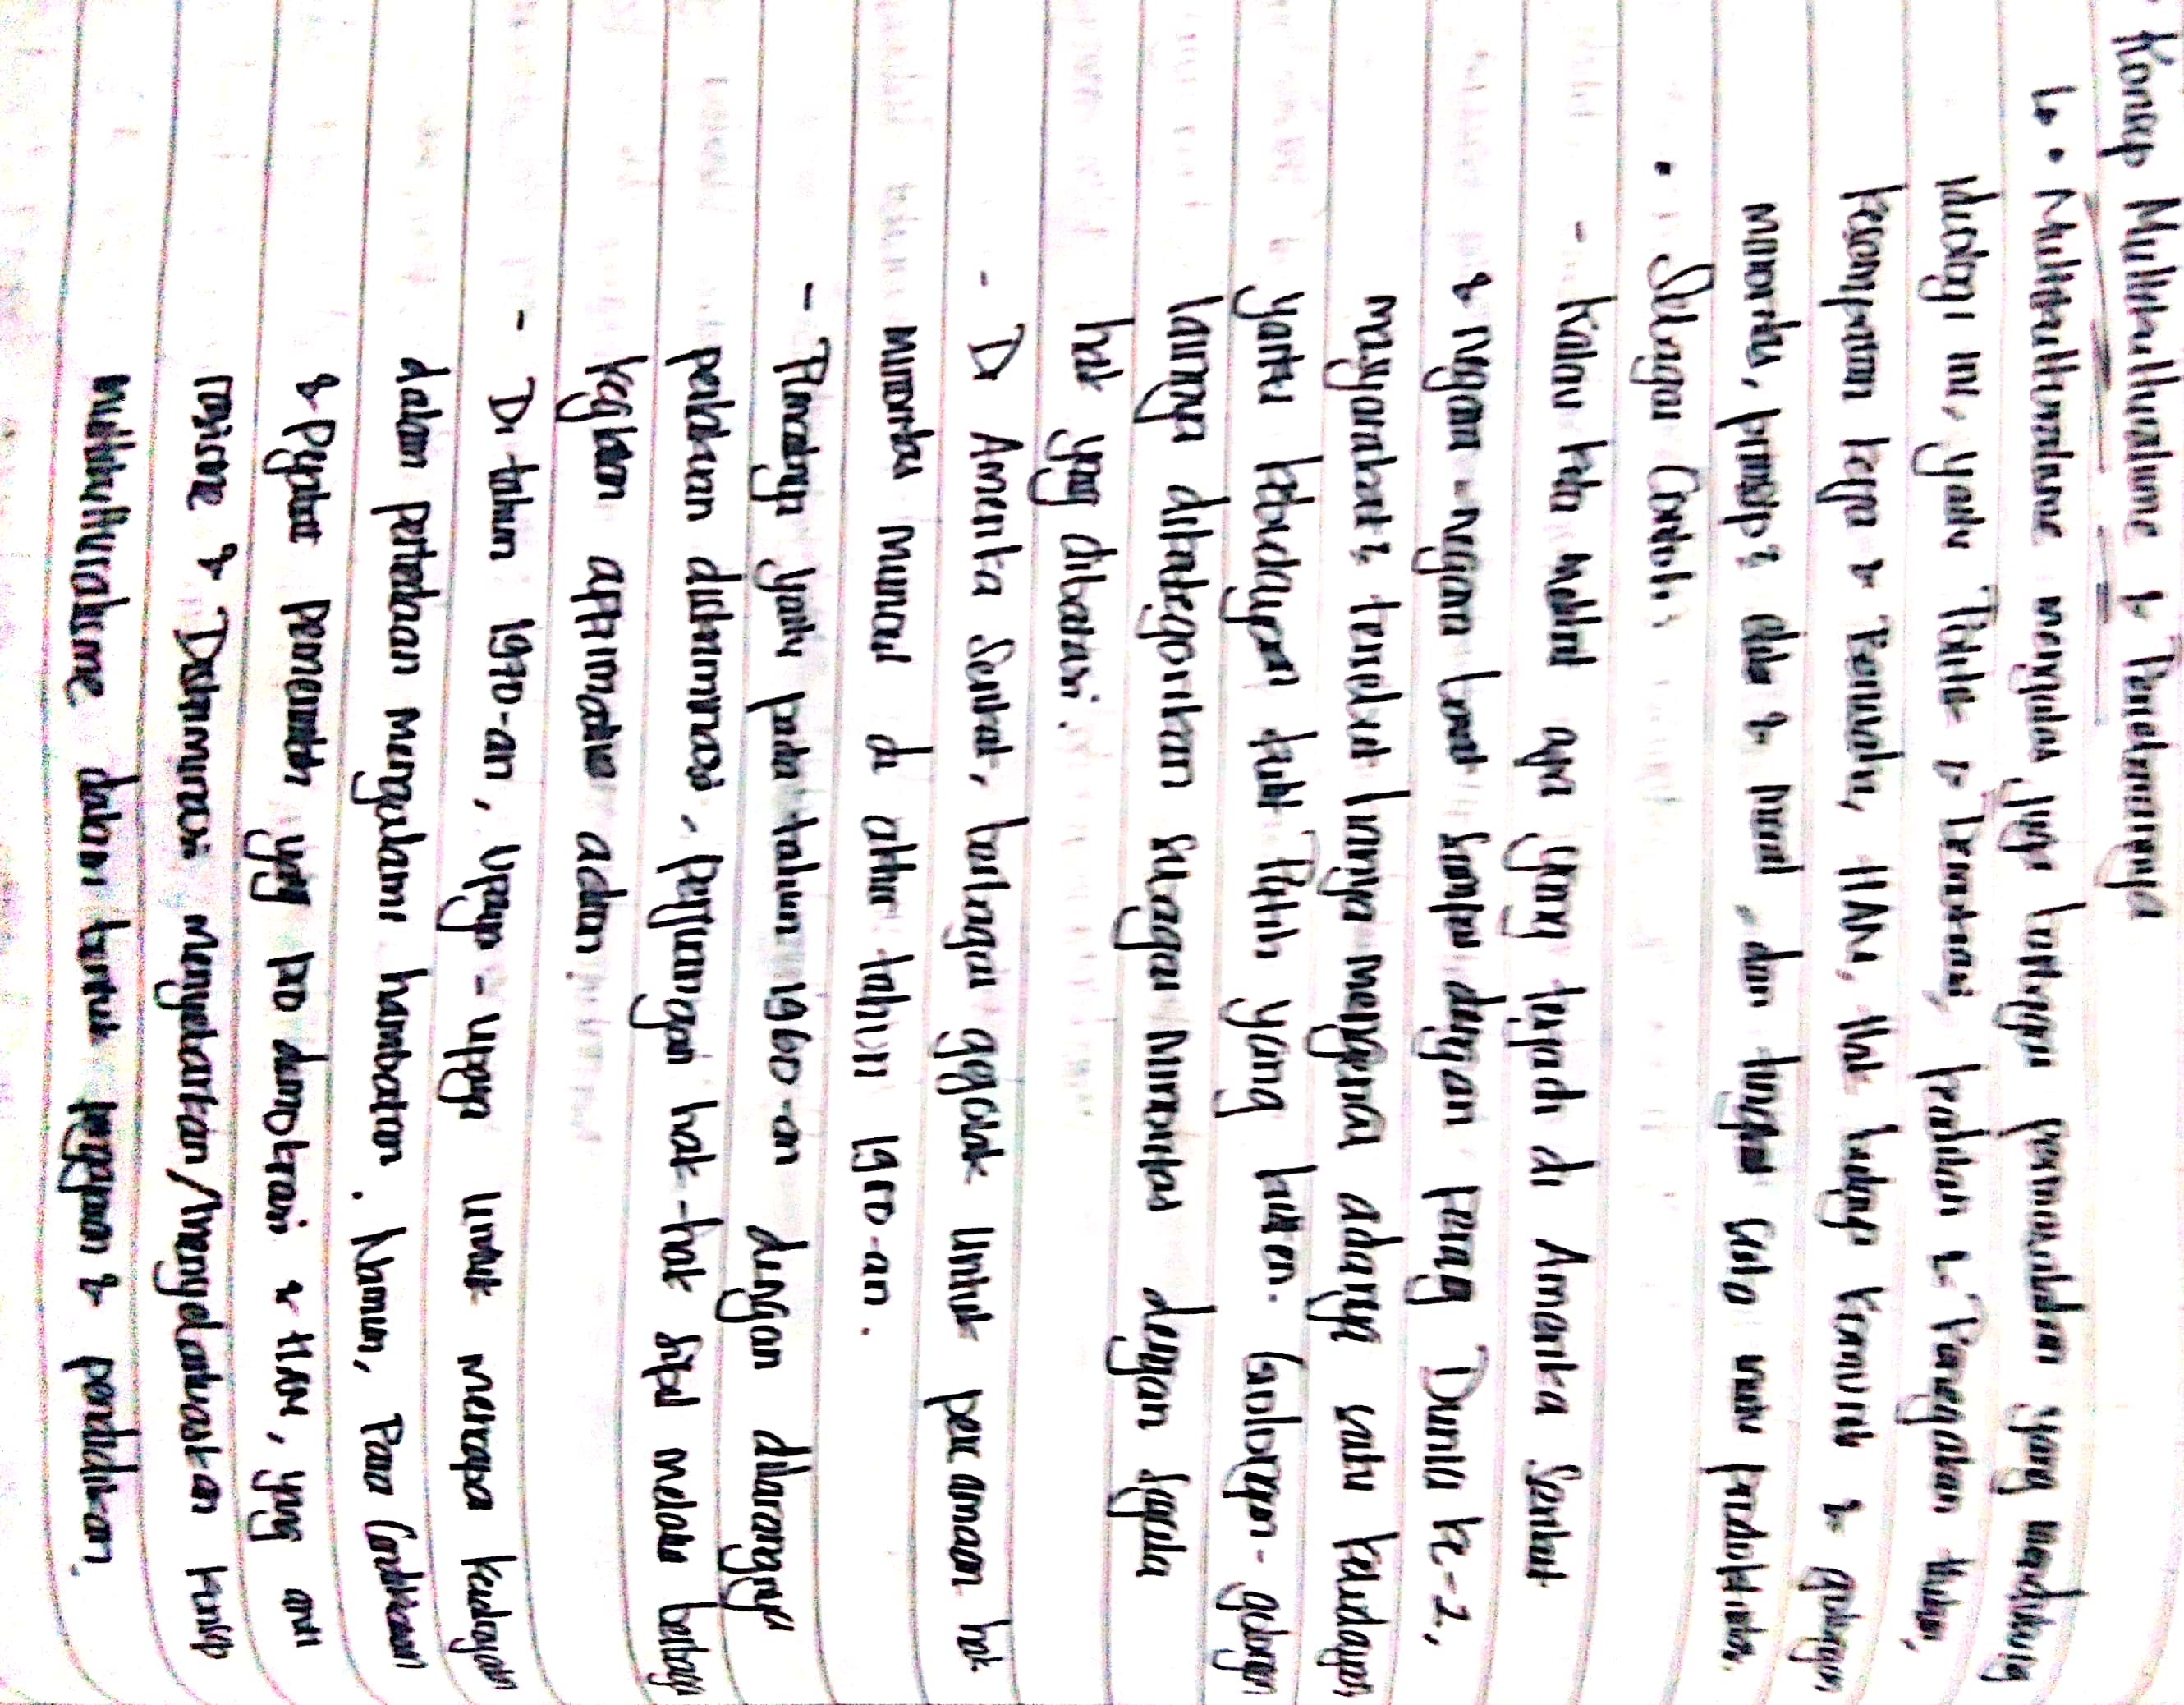 Konsep Multikulturalisme & Penerapannya
↳ • Multikulturalisme mengulas juga berbagai permasalahan yang mendukung
ideologi ini, yaitu Politik & Demokrasi, keadilan & Penegakan Hukum,
kesempatan kerja & Berusaha, HAM, Hak budaya komuniti & golongan
minoritas, prinsip² etika & moral, dan tingkat serta mutu produktivitas.
• Sebagai Contoh :
- Kalau kita melihat apa yang terjadi di Amerika Serikat
& Negara-negara barat sampai dengan Perang Dunia ke-2,
masyarakat² tersebut hanya mengenal adanya satu kebudayaan
yaitu kebudayaan kulit Putih yang kristen. Golongan-golongan
lainnya dikategorikan sebagai minoritas dengan segala
hak yang dibatasi.
- Di Amerika Serikat, berbagai gejolak untuk persamaan hak
minoritas muncul di akhir tahun 1950-an.
- Puncaknya yaitu pada tahun 1960-an dengan dilarangnya
perlakuan diskriminasi, Perjuangan hak-hak sipil melalui berbagai
kegiatan affirmative action.
- Di tahun 1970-an, upaya-upaya untuk mencapai kesederajatan
dalam perbedaan mengalami hambatan. Namun, Para Cendikiawan
& Pejabat pemerintah yg pro demokrasi & HAM, yang anti
rasisme & Diskriminasi menyebarkan/menyebarluaskan konsep
multikulturalisme dalam bentuk pengajaran & pendidikan.